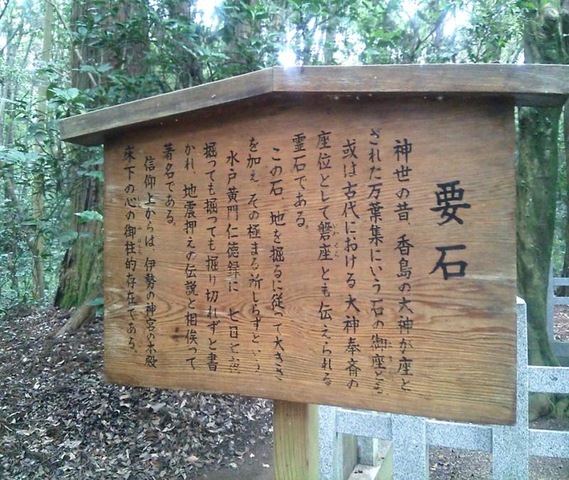 要石
神世の昔、香島の大神が座と
された万葉集にいう石の御座とも
或は古代における大神奉斎の
座位として磐座とも伝えられる
霊石である。
この石、地を掘るに従って大きさ
を加え、その極まる所しらずという。
水戸黄門仁徳録に、七日七夜
掘っても掘っても掘り切れずと書
かれ、地震押えの伝説と相俟って
著名である。
信仰上からは、伊勢の神宮の本殿
床下の心の御柱的存在である。